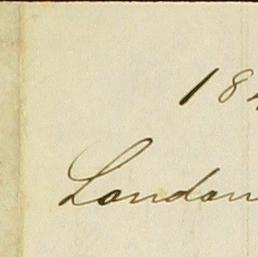 18
London